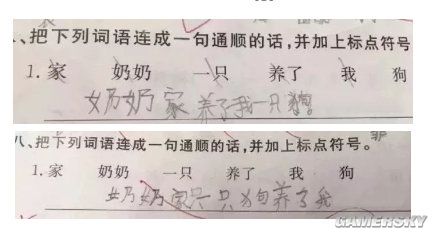 、把下列词语连成一句通顺的话,并加上标点符号
1.家 奶奶 一只 养了 我 狗
奶奶家养了我一只狗
八、把下列词语连成一句通顺的话,并加上标点符号。
1.家 奶奶 一只 养了 我 狗
奶奶家只狗养了我
GAMERSKY